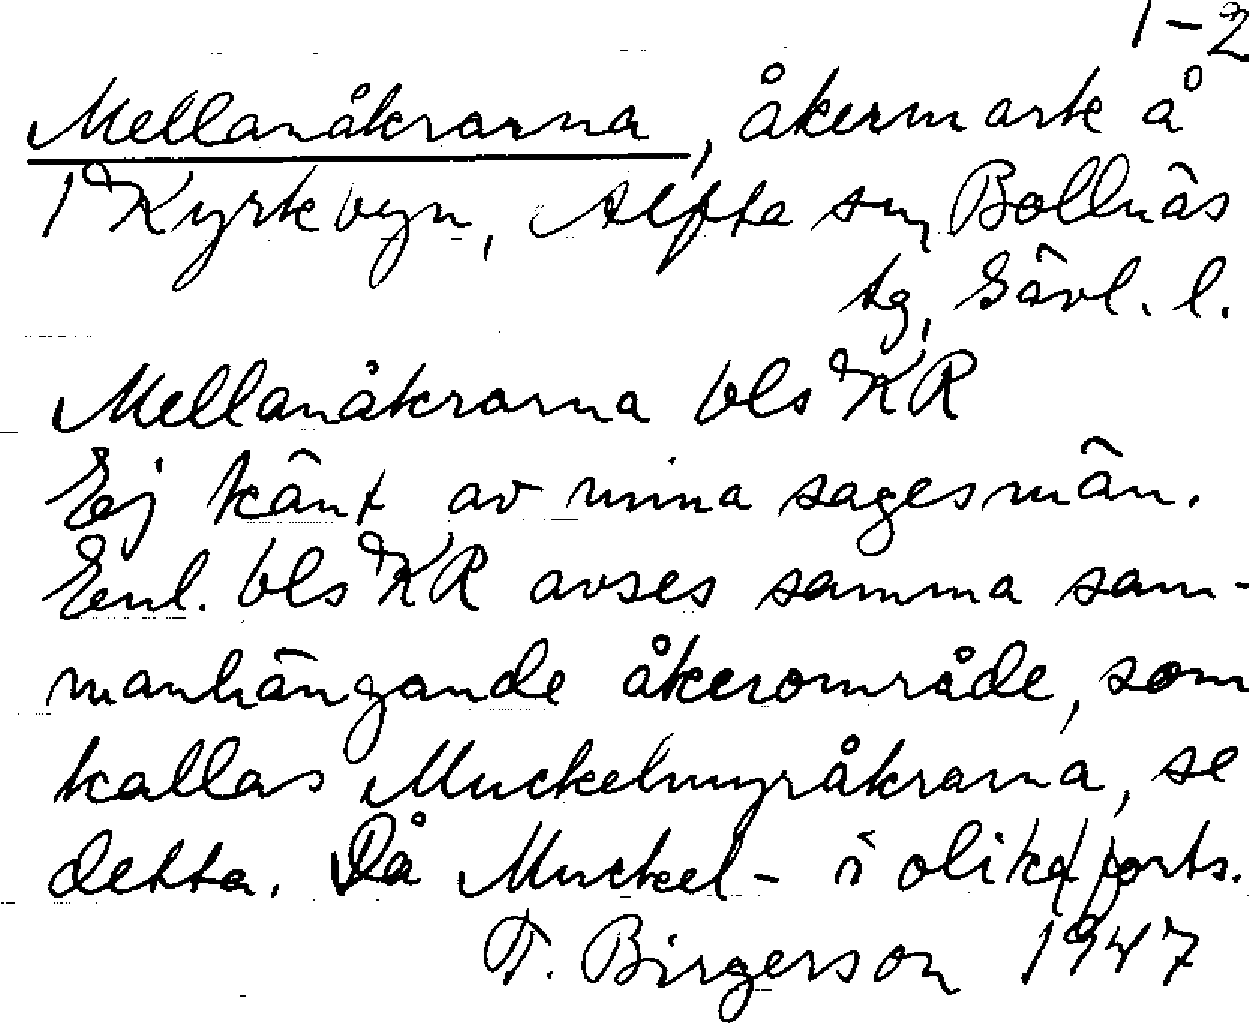 1-2
Mellanåkrarna, åkermark å
1 Kyrkbyn, Alfta sn, Bollnäs
tg, Gävl. l.
Mellanåkrarna bls KR
Ej känt av mina sagesmän.
Enl. bls KR avses samma sam-
manhängande åkerområde, som
kallas Muckelmyråkrarna, se
detta. Då Muckel- i olika forts.
T. Birgerson 1947